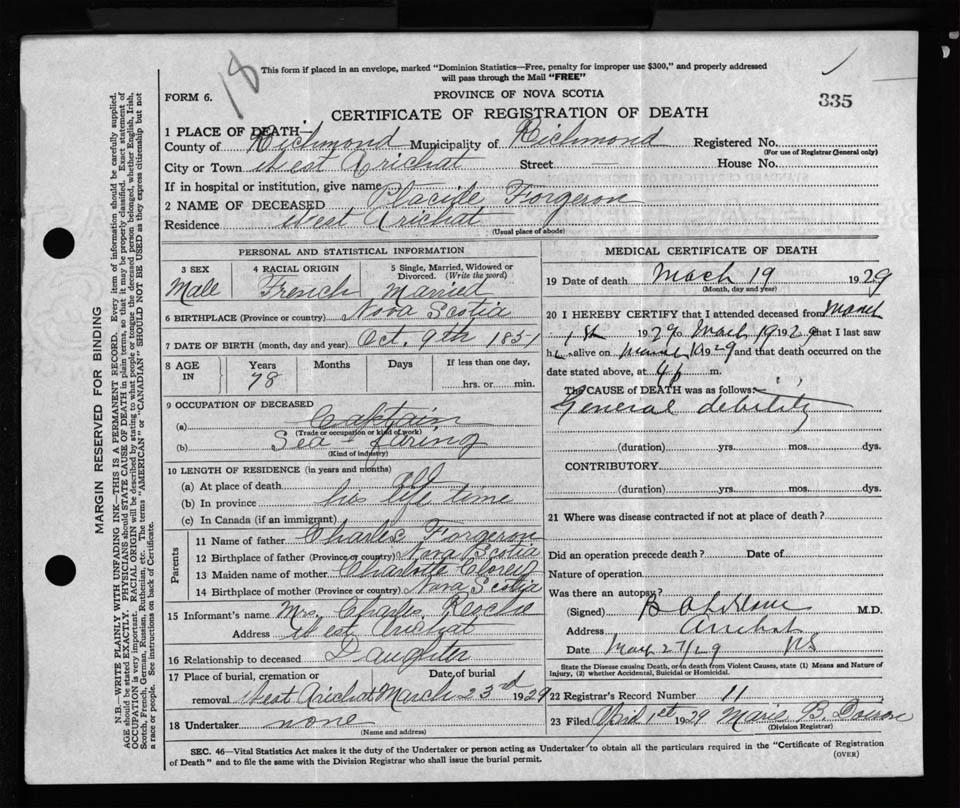 18
This form if placed in an envelope, marked "Dominion Statistics—Free, penalty for improper use $300," and properly addressed
will pass through the Mail "FREE"
FORM 6.
PROVINCE OF NOVA SCOTIA
335
CERTIFICATE OF REGISTRATION OF DEATH
1 PLACE OF DEATH—
County of Richmond Municipality of Richmond Registered No.
(For use of Registrar General only)
City or Town West Arichat Street House No.
If in hospital or institution, give name
2 NAME OF DECEASED Placide Forgeron
Residence West Arichat
(Usual place of abode)
PERSONAL AND STATISTICAL INFORMATION
3 SEX 4 RACIAL ORIGIN 5 Single, Married, Widowed or Divorced. (Write the word)
Male French Married
6 BIRTHPLACE (Province or country) Nova Scotia
7 DATE OF BIRTH (month, day and year) Oct. 9th 1851
8 AGE IN Years Months Days If less than one day,
78 hrs. or min.
9 OCCUPATION OF DECEASED
(a) Captain
(Trade or occupation or kind of work)
(b) Sea-faring
(Kind of industry)
10 LENGTH OF RESIDENCE (in years and months)
(a) At place of death all
(b) In province his life time
(c) In Canada (if an immigrant)
Parents
11 Name of father Charles Forgeron
12 Birthplace of father (Province or country) Nova Scotia
13 Maiden name of mother Charlotte
14 Birthplace of mother (Province or country) Nova Scotia
15 Informant's name Mrs. Charles
Address West Arichat
16 Relationship to deceased Daughter
17 Place of burial, cremation or removal Date of burial
West Arichat March 23rd 1929
18 Undertaker none
(Name and address)
MEDICAL CERTIFICATE OF DEATH
19 Date of death Mach 19 1929
(Month, day and year)
20 I HEREBY CERTIFY that I attended deceased from March
1st 1929 Mach 19 1929 that I last saw
h alive on 1929 and that death occurred on the
date stated above, at 4 p m.
The CAUSE of DEATH was as follows:
General debility
(duration) yrs. mos. dys.
CONTRIBUTORY
(duration) yrs. mos. dys.
21 Where was disease contracted if not at place of death?
Did an operation precede death? Date of
Nature of operation
Was there an autopsy?
(Signed) M.D.
Address Arichat
Date 27/29 NS
State the Disease causing Death, or in death from Violent Causes, state (1) Means and Nature of
Injury, (2) whether Accidental, Suicidal or Homicidal.
22 Registrar's Record Number 11
23 Filed April 1st 1929 B.
(Division Registrar)
SEC. 46—Vital Statistics Act makes it the duty of the Undertaker or person acting as Undertaker to obtain all the particulars required in the "Certificate of Registration
of Death" and to file the same with the Division Registrar who shall issue the burial permit.
(OVER)
MARGIN RESERVED FOR BINDING
N.B.—WRITE PLAINLY WITH UNFADING INK—THIS IS A PERMANENT RECORD. Every item of information should be carefully supplied.
AGE should be stated EXACTLY. PHYSICIANS should STATE CAUSE OF DEATH in plain terms, so that it may be properly classified. Exact statement of
OCCUPATION is very important. RACIAL ORIGIN will be described by stating to what people or tongue the deceased person belonged, whether English, Irish,
Scotch, French, German, Russian, Ruthenian, etc. The terms "AMERICAN" or "CANADIAN" SHOULD NOT BE USED as they express citizenship but not
a race or people. See instructions on back of Certificate.